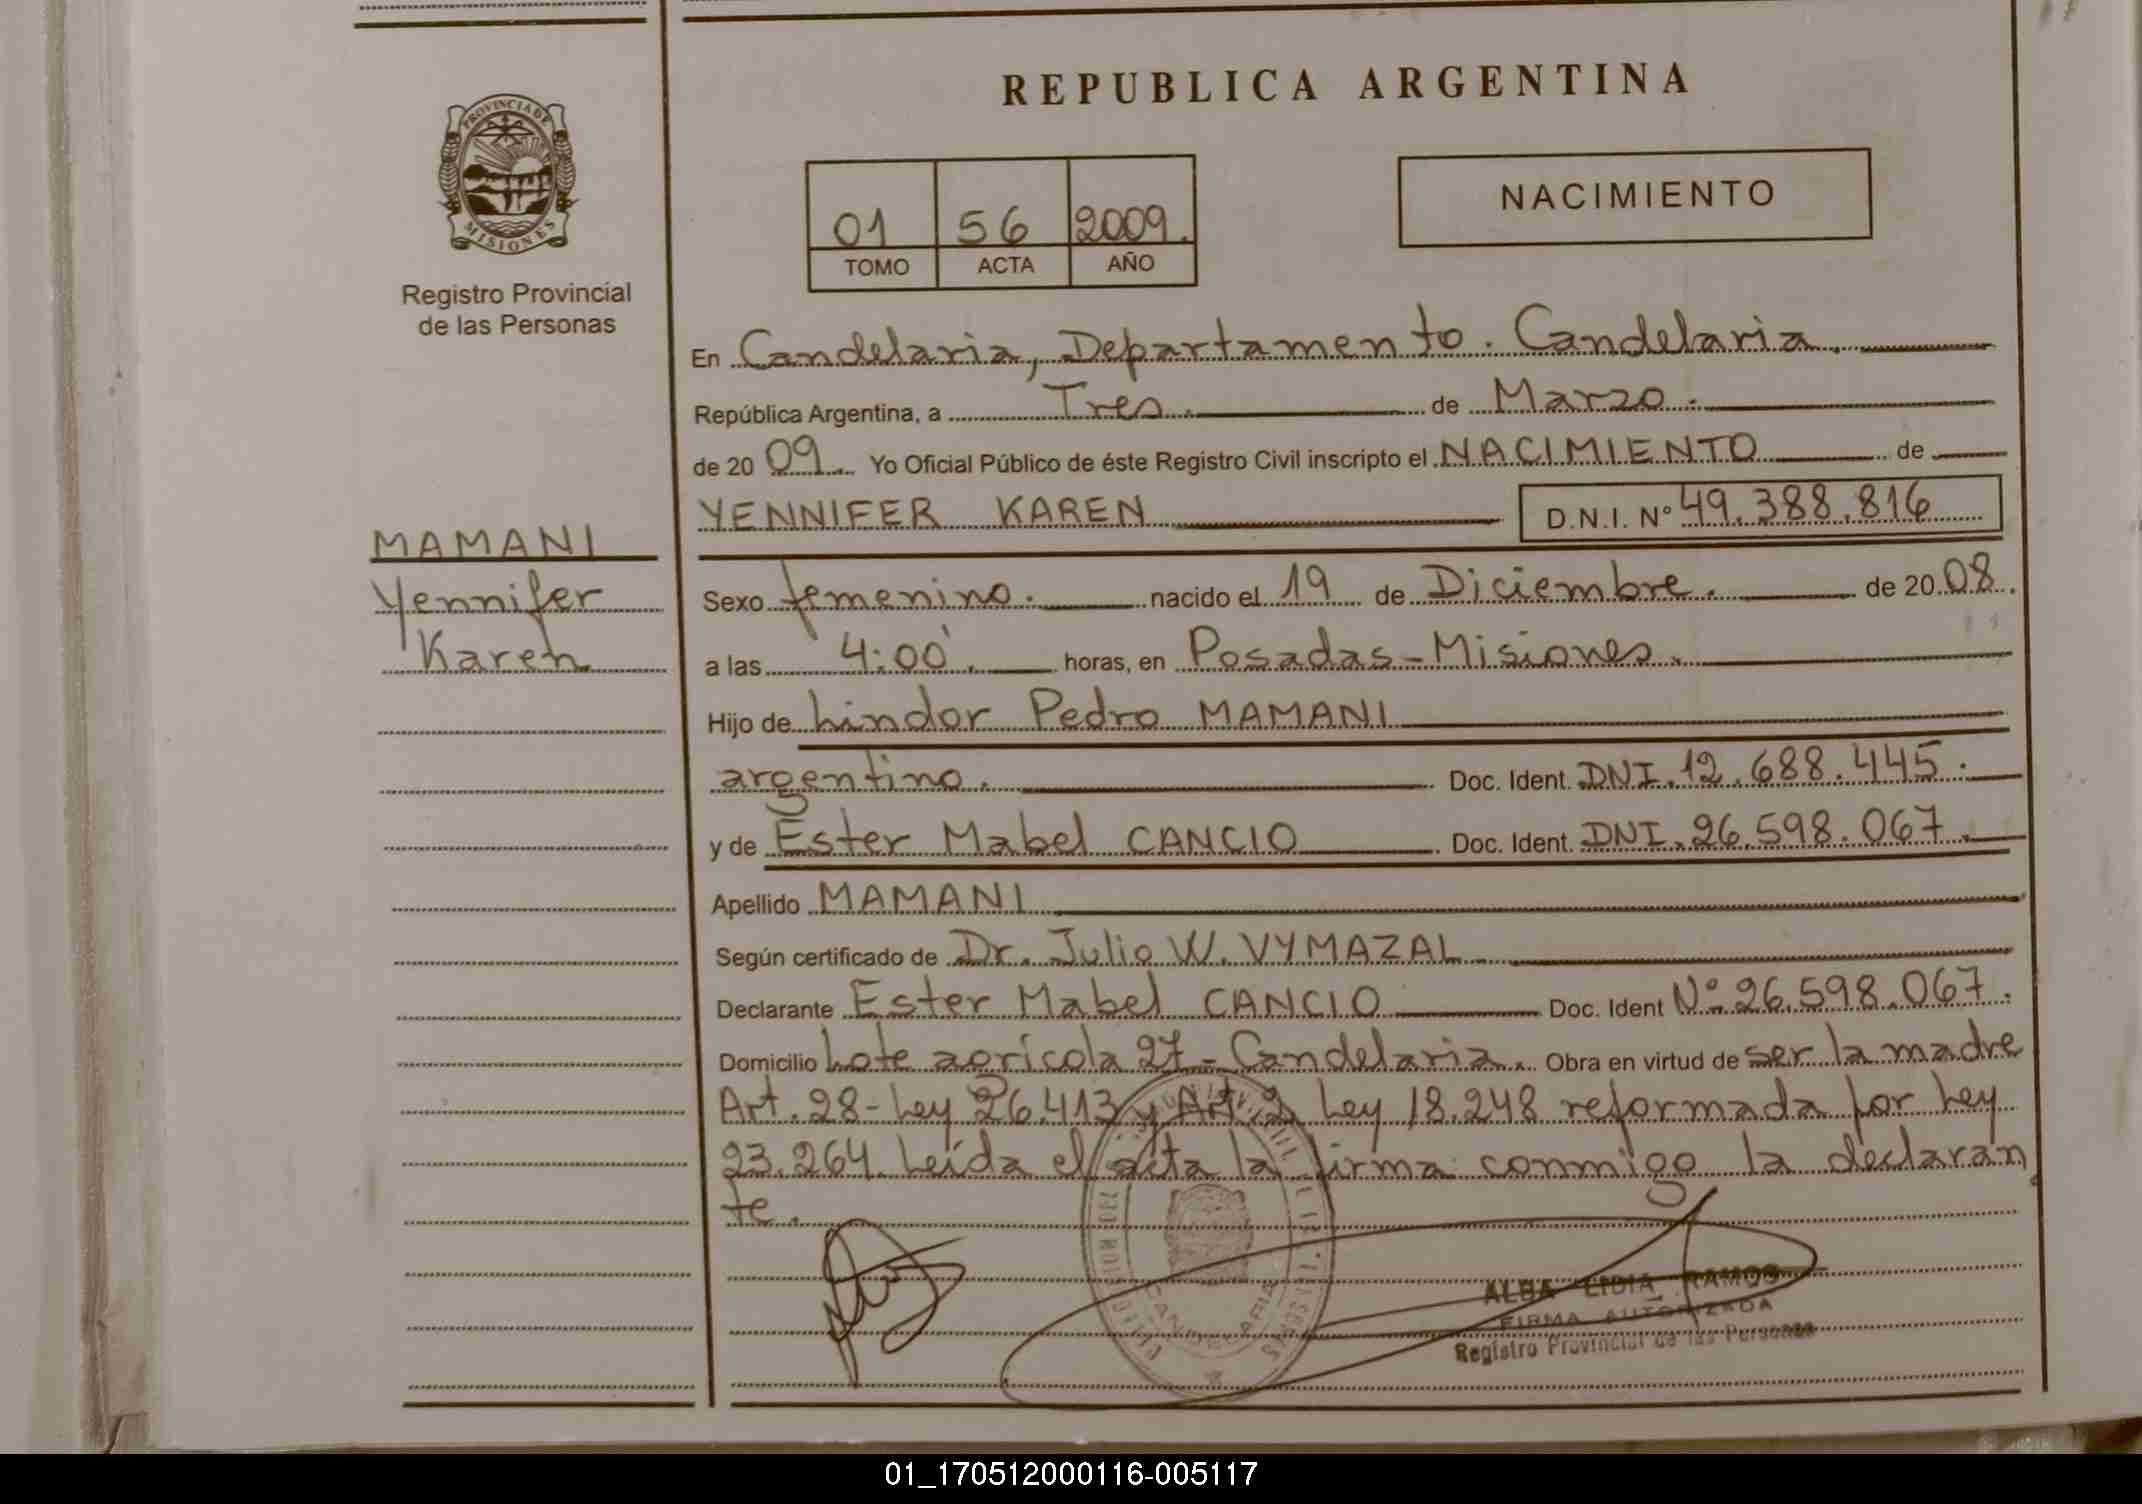 REPUBLICA ARGENTINA
PROVINCIA DE
MISIONES
Registro Provincial
de las Personas
01 56 2009.
TOMO ACTA AÑO
NACIMIENTO
En Candelaria, Departamento. Candelaria.
República Argentina, a Tres. de Marzo.
de 20 09 Yo Oficial Público de éste Registro Civil inscripto el NACIMIENTO de
YENNIFER KAREN D.N.I. N° 49.388.816
MAMANI
Yennifer
Karen
Sexo femenino. nacido el 19 de Diciembre. de 20 08.
a las 4:00'. horas, en Posadas-Misiones.
Hijo de Lindor Pedro MAMANI
argentino. Doc. Ident. DNI.12.688.445.
y de Ester Mabel CANCIO Doc. Ident. DNI.26.598.067.
Apellido MAMANI
Según certificado de Dr. Julio W. VYMAZAL
Declarante Ester Mabel CANCIO Doc. Ident N° 26.598.067.
Domicilio Lote agrícola 27-Candelaria. Obra en virtud de ser la madre
Art. 28-Ley 26.413 y Art 2 Ley 18.248 reformada por Ley
23.264. Leída el acta la firma conmigo la declaran
te.
CANDELARIA
ALBA LIDIA RAMOS
FIRMA AUTORIZADA
Registro Provincial de las Personas
01_170512000116-005117